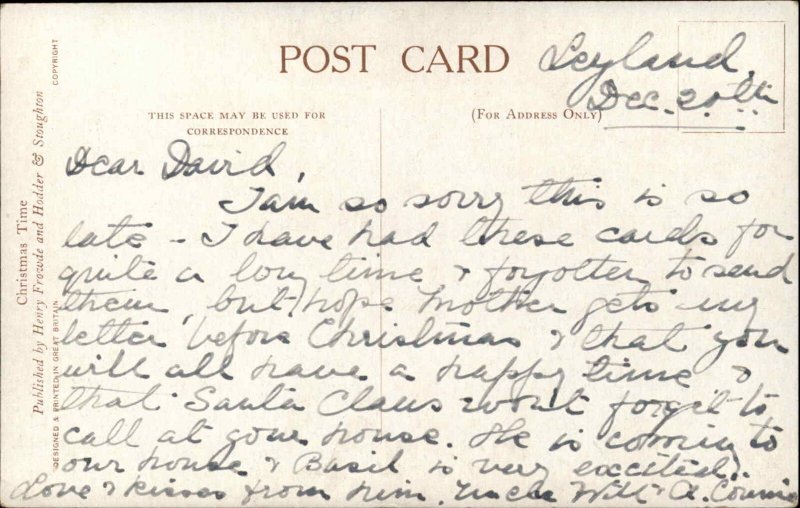 POST CARD
Leyland,
Dec. 20th
THIS SPACE MAY BE USED FOR
CORRESPONDENCE
(FOR ADDRESS ONLY)
Dear David,
I am so sorry this is so
late - I have had these cards for
quite a long time & forgotten to send
them, but hope Mother gets my
letter before Christmas & that you
will all have a happy time &
that Santa Claus won't forget to
call at your house. He is coming to
our house & Basil is very excited.
Love & kisses from him. Uncle Will & A. Connie
Christmas Time
Published by Henry Frowde and Hodder & Stoughton
DESIGNED & PRINTED IN GREAT BRITAIN
COPYRIGHT